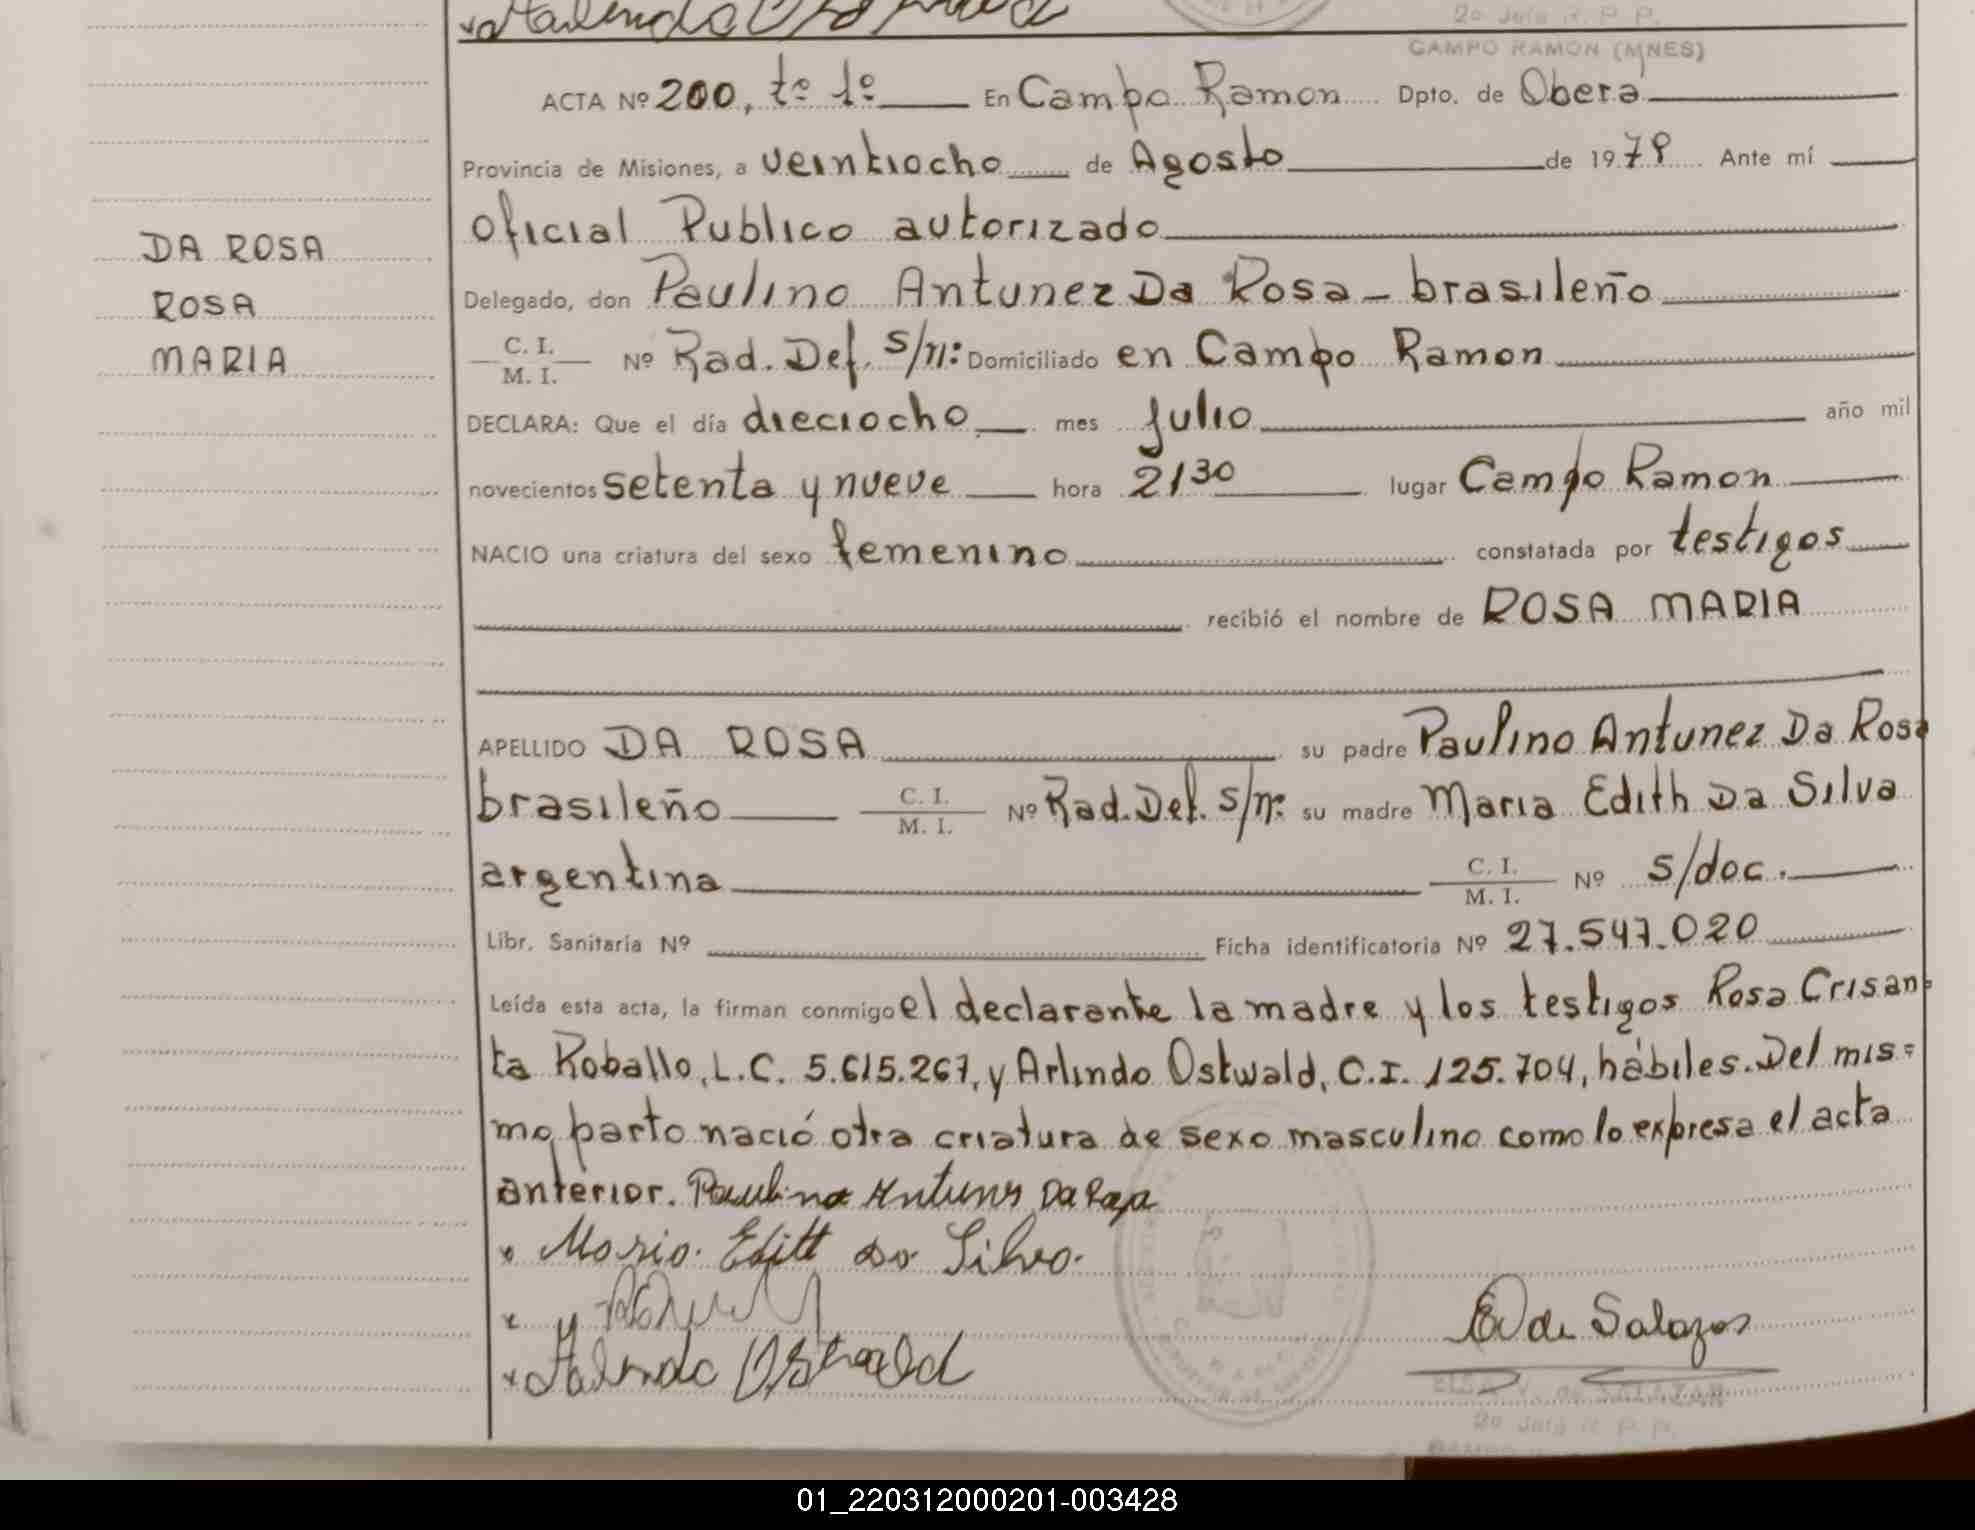 2º Jefa R. P. P.
CAMPO RAMON (MNES)
ACTA Nº 200, tº 1º En Campo Ramon Dpto. de Oberá
Provincia de Misiones, a veintiocho de Agosto de 1979 Ante mí
oficial Publico autorizado
DA ROSA
Delegado, don Paulino Antunez Da Rosa - brasileño
ROSA
C. I.
M. I. Nº Rad. Def. s/n: Domiciliado en Campo Ramon
MARIA
DECLARA: Que el día dieciocho mes Julio año mil
novecientos setenta y nueve hora 2130 lugar Campo Ramon
NACIO una criatura del sexo femenino constatada por testigos
recibió el nombre de ROSA MARIA
APELLIDO DA ROSA su padre Paulino Antunez Da Rosa
brasileño C. I. M. I. Nº Rad. Def. s/n: su madre Maria Edith Da Silva
argentina C. I. M. I. Nº s/doc.
Libr. Sanitaria Nº Ficha identificatoria Nº 27.547.020
Leída esta acta, la firman conmigo el declarante la madre y los testigos Rosa Crisan-
ta Roballo, L.C. 5.615.267, y Arlindo Ostwald, C.I. 125.704, hábiles. Del mis=
mo parto nació otra criatura de sexo masculino como lo expresa el acta
anterior. Paulino Antunes Da Rosa
Maria Editt da Silva.
Ostwald
E V de Salazar
ELSA V. de SALAZAR
2º Jefa R. P. P.
01_220312000201-003428